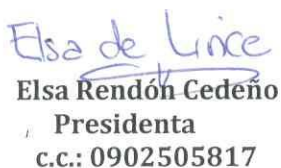 Elsa de Lince
Elsa Rendón Cedeño
Presidenta
c.c.: 0902505817